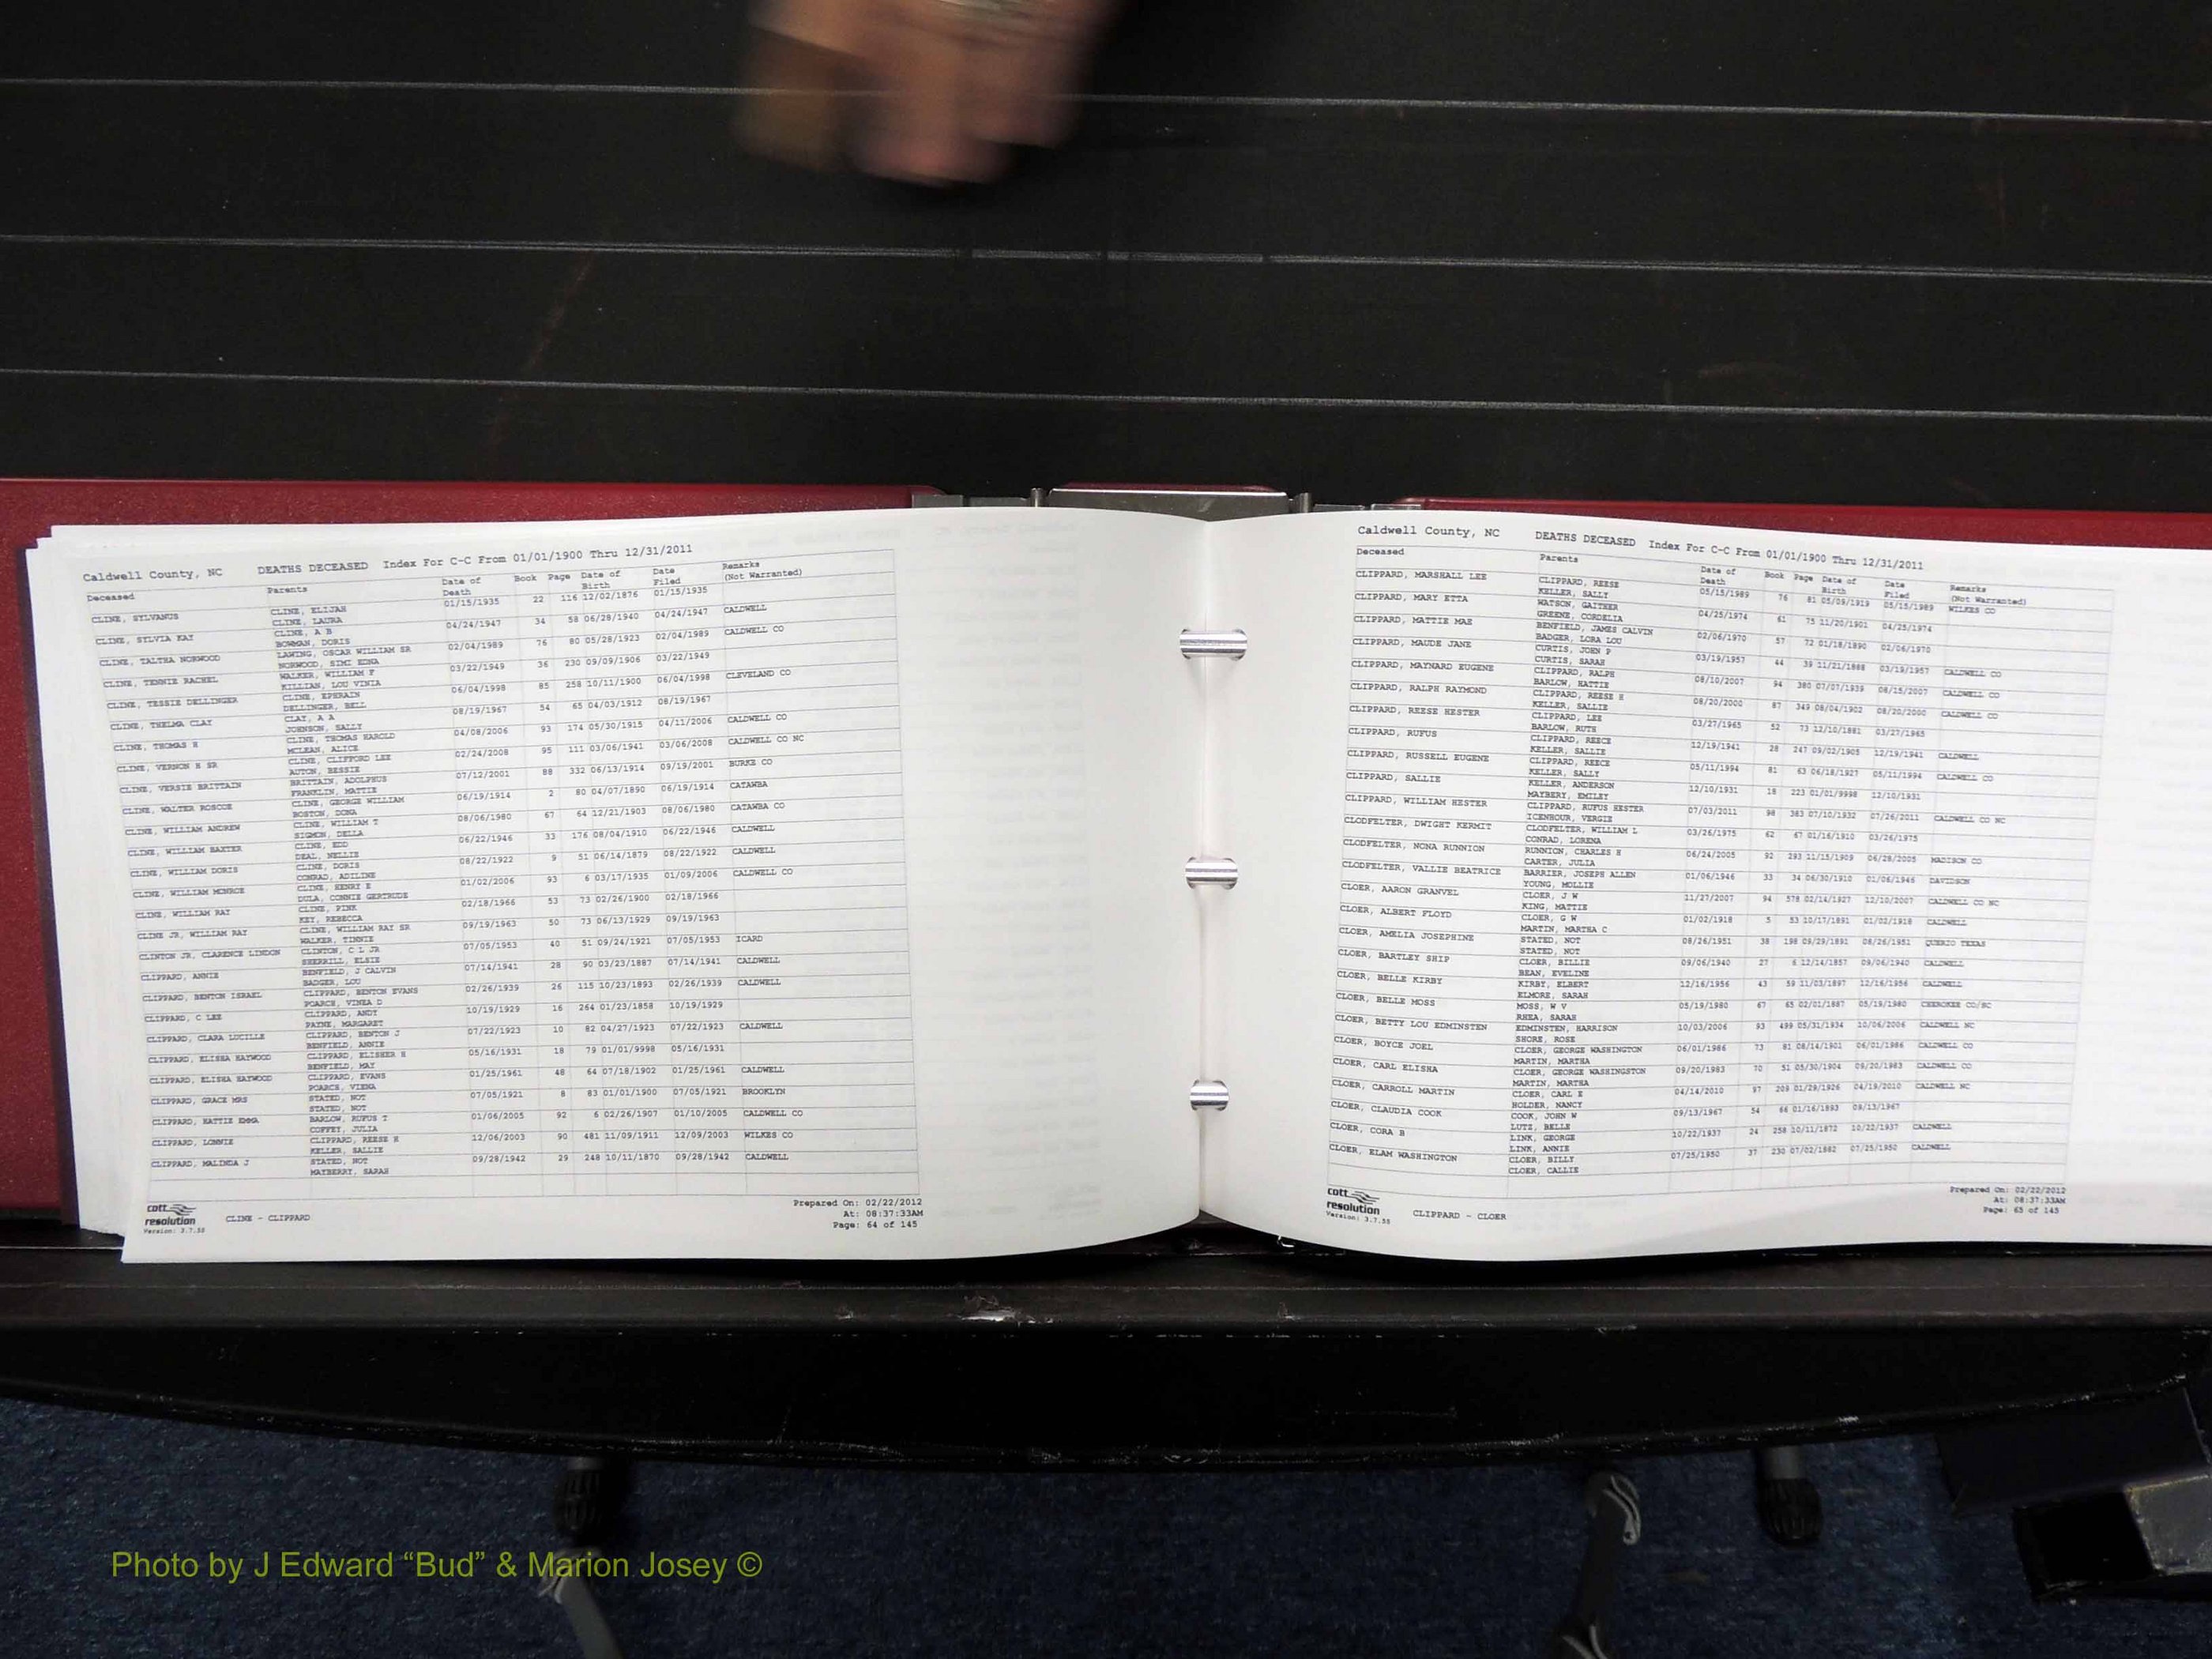 Caldwell County, NC DEATHS DECEASED Index For C-C From 01/01/1900 Thru 12/31/2011
Deceased Parents Date of Death Book Page Date of Birth Date Filed Remarks (Not Warranted)
CLINE, SYLVANUS CLINE, ELIJAH 01/15/1935 22 116 12/02/1876 01/15/1935
CLINE, LAURA
CLINE, SYLVIA KAY CLINE, A B 04/24/1947 34 58 06/28/1940 04/24/1947 CALDWELL
BOWMAN, DORIS
CLINE, TALTHA NORWOOD LAWING, OSCAR WILLIAM SR 02/04/1989 76 80 05/28/1923 02/04/1989 CALDWELL CO
NORWOOD, SIMI EDNA
CLINE, TENNIE RACHEL WALKER, WILLIAM F 03/22/1949 36 230 09/09/1906 03/22/1949
KILLIAN, LOU VINIA
CLINE, TESSIE DELLINGER CLINE, EPHRAIN 06/04/1998 85 258 10/11/1900 06/04/1998 CLEVELAND CO
DELLINGER, BELL
CLINE, THELMA CLAY CLAY, A A 08/19/1967 54 65 04/03/1912 08/19/1967
JOHNSON, SALLY
CLINE, THOMAS H CLINE, THOMAS HAROLD 04/08/2006 93 174 05/30/1915 04/11/2006 CALDWELL CO
MCLEAN, ALICE
CLINE, VERNON H SR CLINE, CLIFFORD LEE 02/24/2008 95 111 03/06/1941 03/06/2008 CALDWELL CO NC
AUTON, BESSIE
CLINE, VERSIE BRITTAIN BRITTAIN, ADOLPHUS 07/12/2001 88 332 06/13/1914 09/19/2001 BURKE CO
FRANKLIN, MATTIE
CLINE, WALTER ROSCOE CLINE, GEORGE WILLIAM 06/19/1914 2 80 04/07/1890 06/19/1914 CATAWBA
BOSTON, DONA
CLINE, WILLIAM ANDREW CLINE, WILLIAM T 08/06/1980 67 64 12/21/1903 08/06/1980 CATAWBA CO
SIGMON, DELLA
CLINE, WILLIAM BAXTER CLINE, EDD 06/22/1946 33 176 08/04/1910 06/22/1946 CALDWELL
DEAL, NELLIE
CLINE, WILLIAM DORIS CLINE, DORIS 08/22/1922 9 51 06/14/1879 08/22/1922 CALDWELL
CONRAD, ADILINE
CLINE, WILLIAM MONROE CLINE, HENRY E 01/02/2006 93 6 03/17/1935 01/09/2006 CALDWELL CO
DULA, CONNIE GERTRUDE
CLINE, WILLIAM RAY CLINE, PINK 02/18/1966 53 73 02/26/1900 02/18/1966
KEY, REBECCA
CLINE JR, WILLIAM RAY CLINE, WILLIAM RAY SR 09/19/1963 50 73 06/13/1929 09/19/1963
WALKER, TINNIE
CLINTON JR, CLARENCE LINDON CLINTON, C L JR 07/05/1953 40 51 09/24/1921 07/05/1953 ICARD
SHERRILL, ELSIE
CLIPPARD, ANNIE BENFIELD, J CALVIN 07/14/1941 28 90 03/23/1887 07/14/1941 CALDWELL
BADGER, LOU
CLIPPARD, BENTON ISRAEL CLIPPARD, BENTON EVANS 02/26/1939 26 115 10/23/1893 02/26/1939 CALDWELL
POARCH, VINEA D
CLIPPARD, C LEE CLIPPARD, ANDY 10/19/1929 16 264 01/23/1858 10/19/1929
PAYNE, MARGARET
CLIPPARD, CLARA LUCILLE CLIPPARD, BENTON J 07/22/1923 10 82 04/27/1923 07/22/1923 CALDWELL
BENFIELD, ANNIE
CLIPPARD, ELISHA HAYWOOD CLIPPARD, ELISHER H 05/16/1931 18 79 01/01/9998 05/16/1931
BENFIELD, MAY
CLIPPARD, ELISHA HAYWOOD CLIPPARD, EVANS 01/25/1961 48 64 07/18/1902 01/25/1961 CALDWELL
POARCS, VIENA
CLIPPARD, GRACE MRS STATED, NOT 07/05/1921 8 83 01/01/1900 07/05/1921 BROOKLYN
STATED, NOT
CLIPPARD, HATTIE EMMA BARLOW, RUFUS T 01/06/2005 92 6 02/26/1907 01/10/2005 CALDWELL CO
COFFEY, JULIA
CLIPPARD, LONNIE CLIPPARD, REESE H 12/06/2003 90 481 11/09/1911 12/09/2003 WILKES CO
KELLER, SALLIE
CLIPPARD, MALINDA J STATED, NOT 09/28/1942 29 248 10/11/1870 09/28/1942 CALDWELL
MAYBERRY, SARAH
cott resolution
Version: 3.7.50
CLINE - CLIPPARD
Prepared On: 02/22/2012
At: 08:37:33AM
Page: 64 of 145
Caldwell County, NC DEATHS DECEASED Index For C-C From 01/01/1900 Thru 12/31/2011
Deceased Parents Date of Death Book Page Date of Birth Date Filed Remarks (Not Warranted)
CLIPPARD, MARSHALL LEE CLIPPARD, REESE 05/15/1989 76 81 05/09/1919 05/15/1989 WILKES CO
KELLER, SALLY
CLIPPARD, MARY ETTA WATSON, GAITHER 04/25/1974 61 75 11/20/1901 04/25/1974
GREENE, CORDELIA
CLIPPARD, MATTIE MAE BENFIELD, JAMES CALVIN 02/06/1970 57 72 01/18/1890 02/06/1970
BADGER, LORA LOU
CLIPPARD, MAUDE JANE CURTIS, JOHN P 03/19/1957 44 39 11/21/1888 03/19/1957 CALDWELL CO
CURTIS, SARAH
CLIPPARD, MAYNARD EUGENE CLIPPARD, RALPH 08/10/2007 94 380 07/07/1939 08/15/2007 CALDWELL CO
BARLOW, HATTIE
CLIPPARD, RALPH RAYMOND CLIPPARD, REESE H 08/20/2000 87 349 08/04/1902 08/20/2000 CALDWELL CO
KELLER, SALLIE
CLIPPARD, REESE HESTER CLIPPARD, LEE 03/27/1965 52 73 12/10/1881 03/27/1965
BARLOW, RUTH
CLIPPARD, RUFUS CLIPPARD, REECE 12/19/1941 28 247 09/02/1905 12/19/1941 CALDWELL
KELLER, SALLIE
CLIPPARD, RUSSELL EUGENE CLIPPARD, REECE 05/11/1994 81 63 06/18/1927 05/11/1994 CALDWELL CO
KELLER, SALLY
CLIPPARD, SALLIE KELLER, ANDERSON 12/10/1931 18 223 01/01/9998 12/10/1931
MAYBERY, EMILEY
CLIPPARD, WILLIAM HESTER CLIPPARD, RUFUS HESTER 07/03/2011 98 383 07/10/1932 07/26/2011 CALDWELL CO NC
ICENHOUR, VERGIE
CLODFELTER, DWIGHT KERMIT CLODFELTER, WILLIAM L 03/26/1975 62 67 01/16/1910 03/26/1975
CONRAD, LORENA
CLODFELTER, NONA RUNNION RUNNION, CHARLES H 06/24/2005 92 293 11/15/1909 06/28/2005 MADISON CO
CARTER, JULIA
CLODFELTER, VALLIE BEATRICE BARRIER, JOSEPH ALLEN 01/06/1946 33 34 06/30/1910 01/06/1946 DAVIDSON
YOUNG, MOLLIE
CLOER, AARON GRANVEL CLOER, J W 11/27/2007 94 578 02/14/1927 12/10/2007 CALDWELL CO NC
KING, MATTIE
CLOER, ALBERT FLOYD CLOER, G W 01/02/1918 5 53 10/17/1891 01/02/1918 CALDWELL
MARTIN, MARTHA C
CLOER, AMELIA JOSEPHINE STATED, NOT 08/26/1951 38 198 09/29/1891 08/26/1951 QUERIO TEXAS
STATED, NOT
CLOER, BARTLEY SHIP CLOER, BILLIE 09/06/1940 27 6 12/14/1857 09/06/1940 CALDWELL
BEAN, EVELINE
CLOER, BELLE KIRBY KIRBY, ELBERT 12/16/1956 43 59 11/03/1897 12/16/1956 CALDWELL
ELMORE, SARAH
CLOER, BELLE MOSS MOSS, W V 05/19/1980 67 65 02/01/1887 05/19/1980 CHEROKEE CO/NC
RHEA, SARAH
CLOER, BETTY LOU EDMINSTEN EDMINSTEN, HARRISON 10/03/2006 93 499 05/31/1934 10/06/2006 CALDWELL NC
SHORE, ROSE
CLOER, BOYCE JOEL CLOER, GEORGE WASHINGTON 06/01/1986 73 81 08/14/1901 06/01/1986 CALDWELL CO
MARTIN, MARTHA
CLOER, CARL ELISHA CLOER, GEORGE WASHINGSTON 09/20/1983 70 51 05/30/1904 09/20/1983 CALDWELL CO
MARTIN, MARTHA
CLOER, CARROLL MARTIN CLOER, CARL E 04/14/2010 97 209 01/29/1926 04/19/2010 CALDWELL NC
HOLDER, NANCY
CLOER, CLAUDIA COOK COOK, JOHN W 09/13/1967 54 66 01/16/1893 09/13/1967
LUTZ, BELLE
CLOER, CORA B LINK, GEORGE 10/22/1937 24 258 10/11/1872 10/22/1937 CALDWELL
LINK, ANNIE
CLOER, ELAM WASHINGTON CLOER, BILLY 07/25/1950 37 230 07/02/1882 07/25/1950 CALDWELL
CLOER, CALLIE
cott resolution
Version: 3.7.50
CLIPPARD - CLOER
Prepared On: 02/22/2012
At: 08:37:33AM
Page: 65 of 145
Photo by J Edward “Bud” & Marion Josey ©